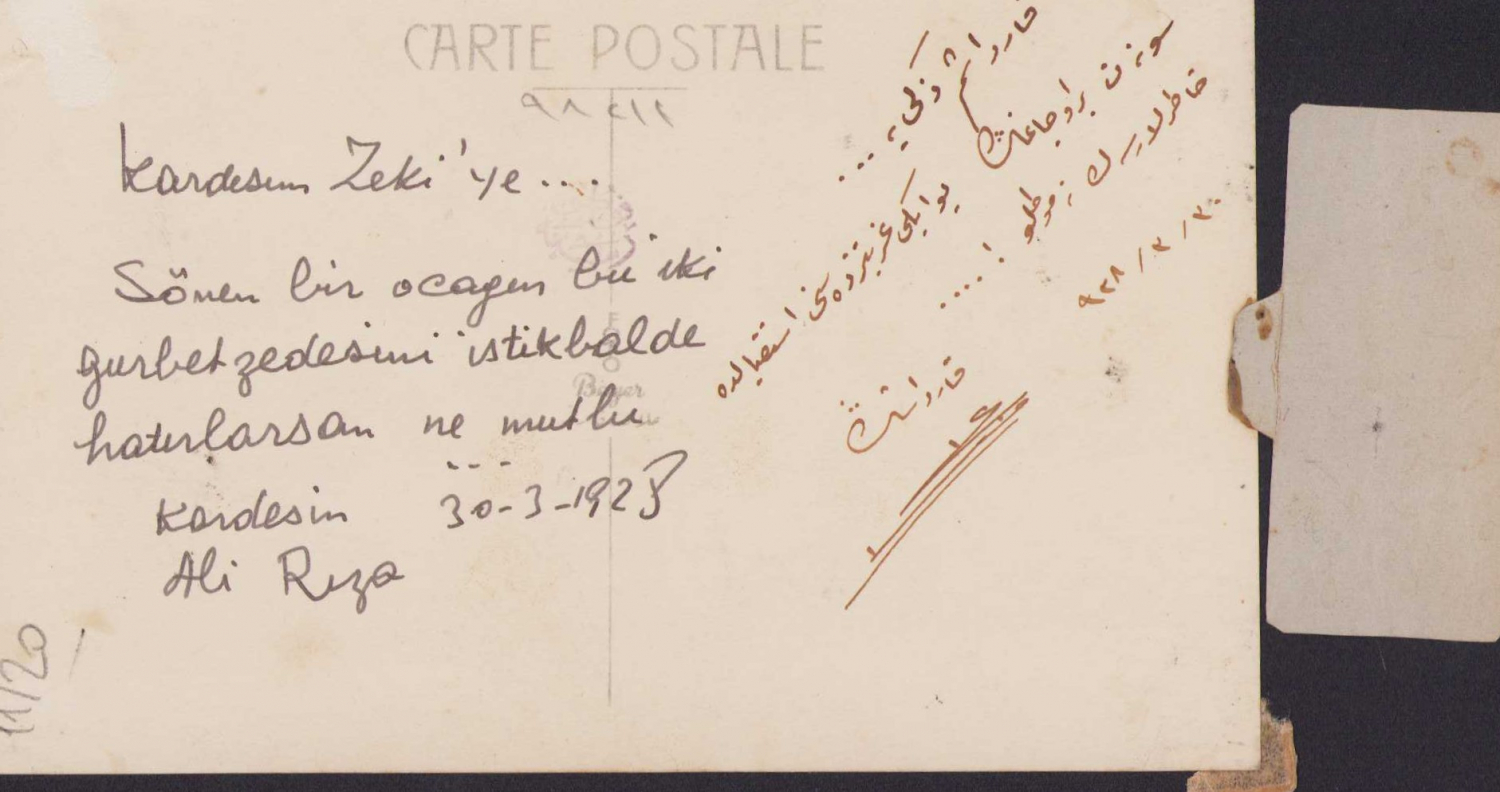 CARTE POSTALE
Kardesım Zeki'ye ....
Sönen bir ocagın bu iki
gurbetzedesini istikbalde
hatırlarsan ne mutlu
...
Kardesin 30-3-1928
Ali Rıza
11/20
قارداشم ذکی یه ....
سونن بر اوجاغك
بو ایکی غربتزده سنی استقبالده
خاطرلارسه ك نه موطلو ! ....
٩٢٨ / ٣ / ٣٠
قارداشك